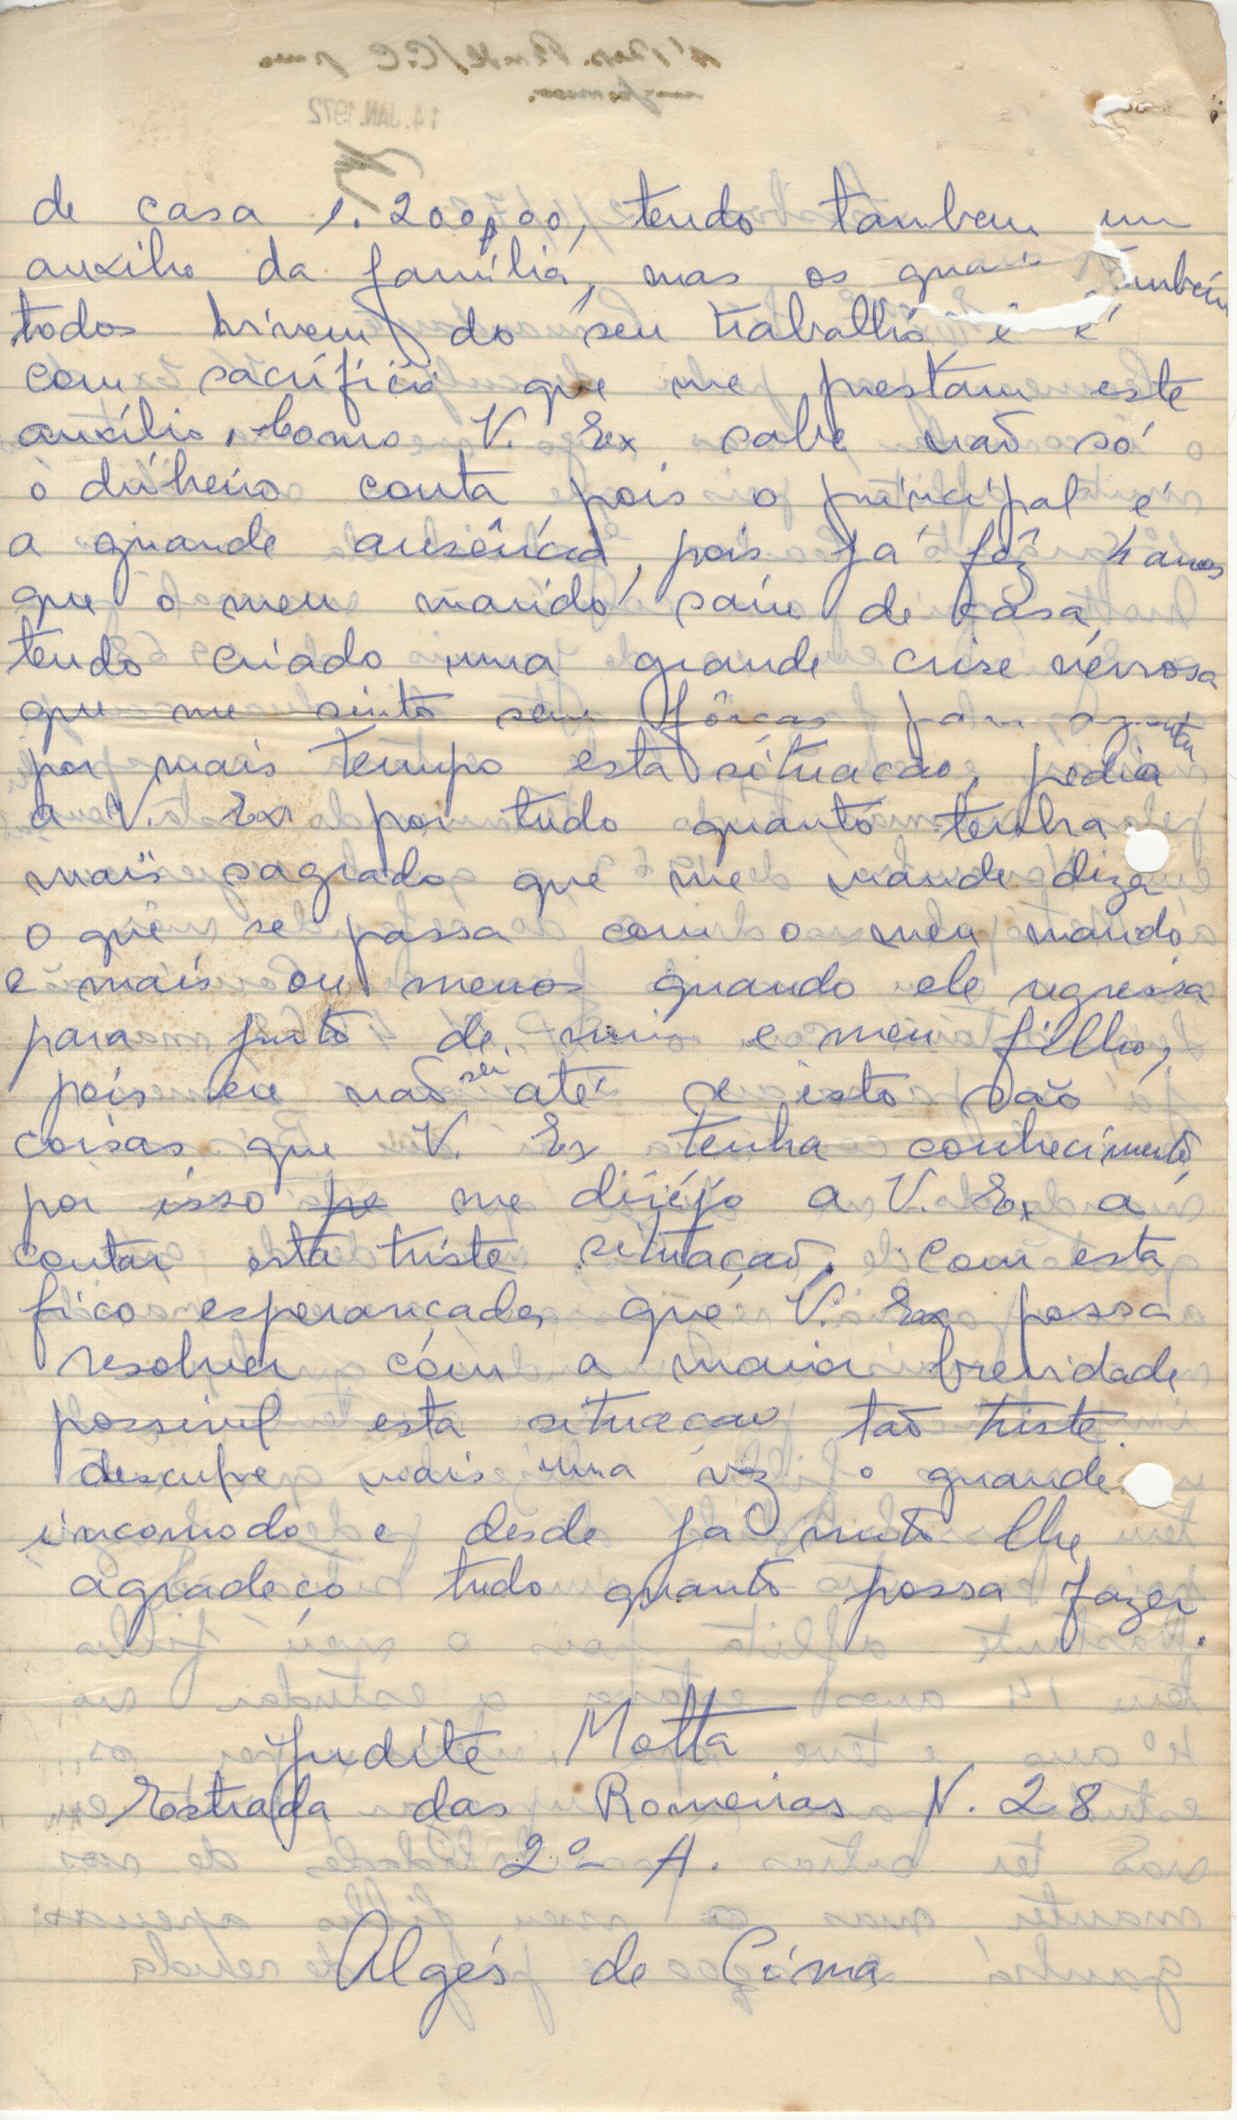 14. JAN. 1972
de casa 1.200$00, tendo tambem um
auxilio da família, mas os quais tambem
todos vivem do seu trabalho, e é
com sacrifício que me prestam este
auxílio, como V. Ex sabe não só
o dinheiro conta pois o principal é
a grande ausência, pois já fêz 4 anos
que o meu marido saiu de casa,
tendo criado uma grande crise nervosa
que me sinto sem fôrças para aguentar
por mais tempo esta situacao, pedia
a V. Exa por tudo quanto tenha
mais sagrado que me mande dizer
o que se passa com o meu marido
e mais ou menos quando ele regressa
para junto de mim e meu filho,
pois eu não sei até se isto são
coisas que V. Ex tenha conhecimento,
por isso pe me dirijo a V. Ex a
contar esta triste situação. Com esta
fico esperançada que V. Ex possa
resolver com a maior brevidade
possivel esta situacao tão triste.
desculpe mais uma vez o grande
incomodo e desde já muito lhe
agradeço tudo quanto possa fazer.
Judite Motta
Estrada das Romeiras N. 28
2º A.
Algés de Cima